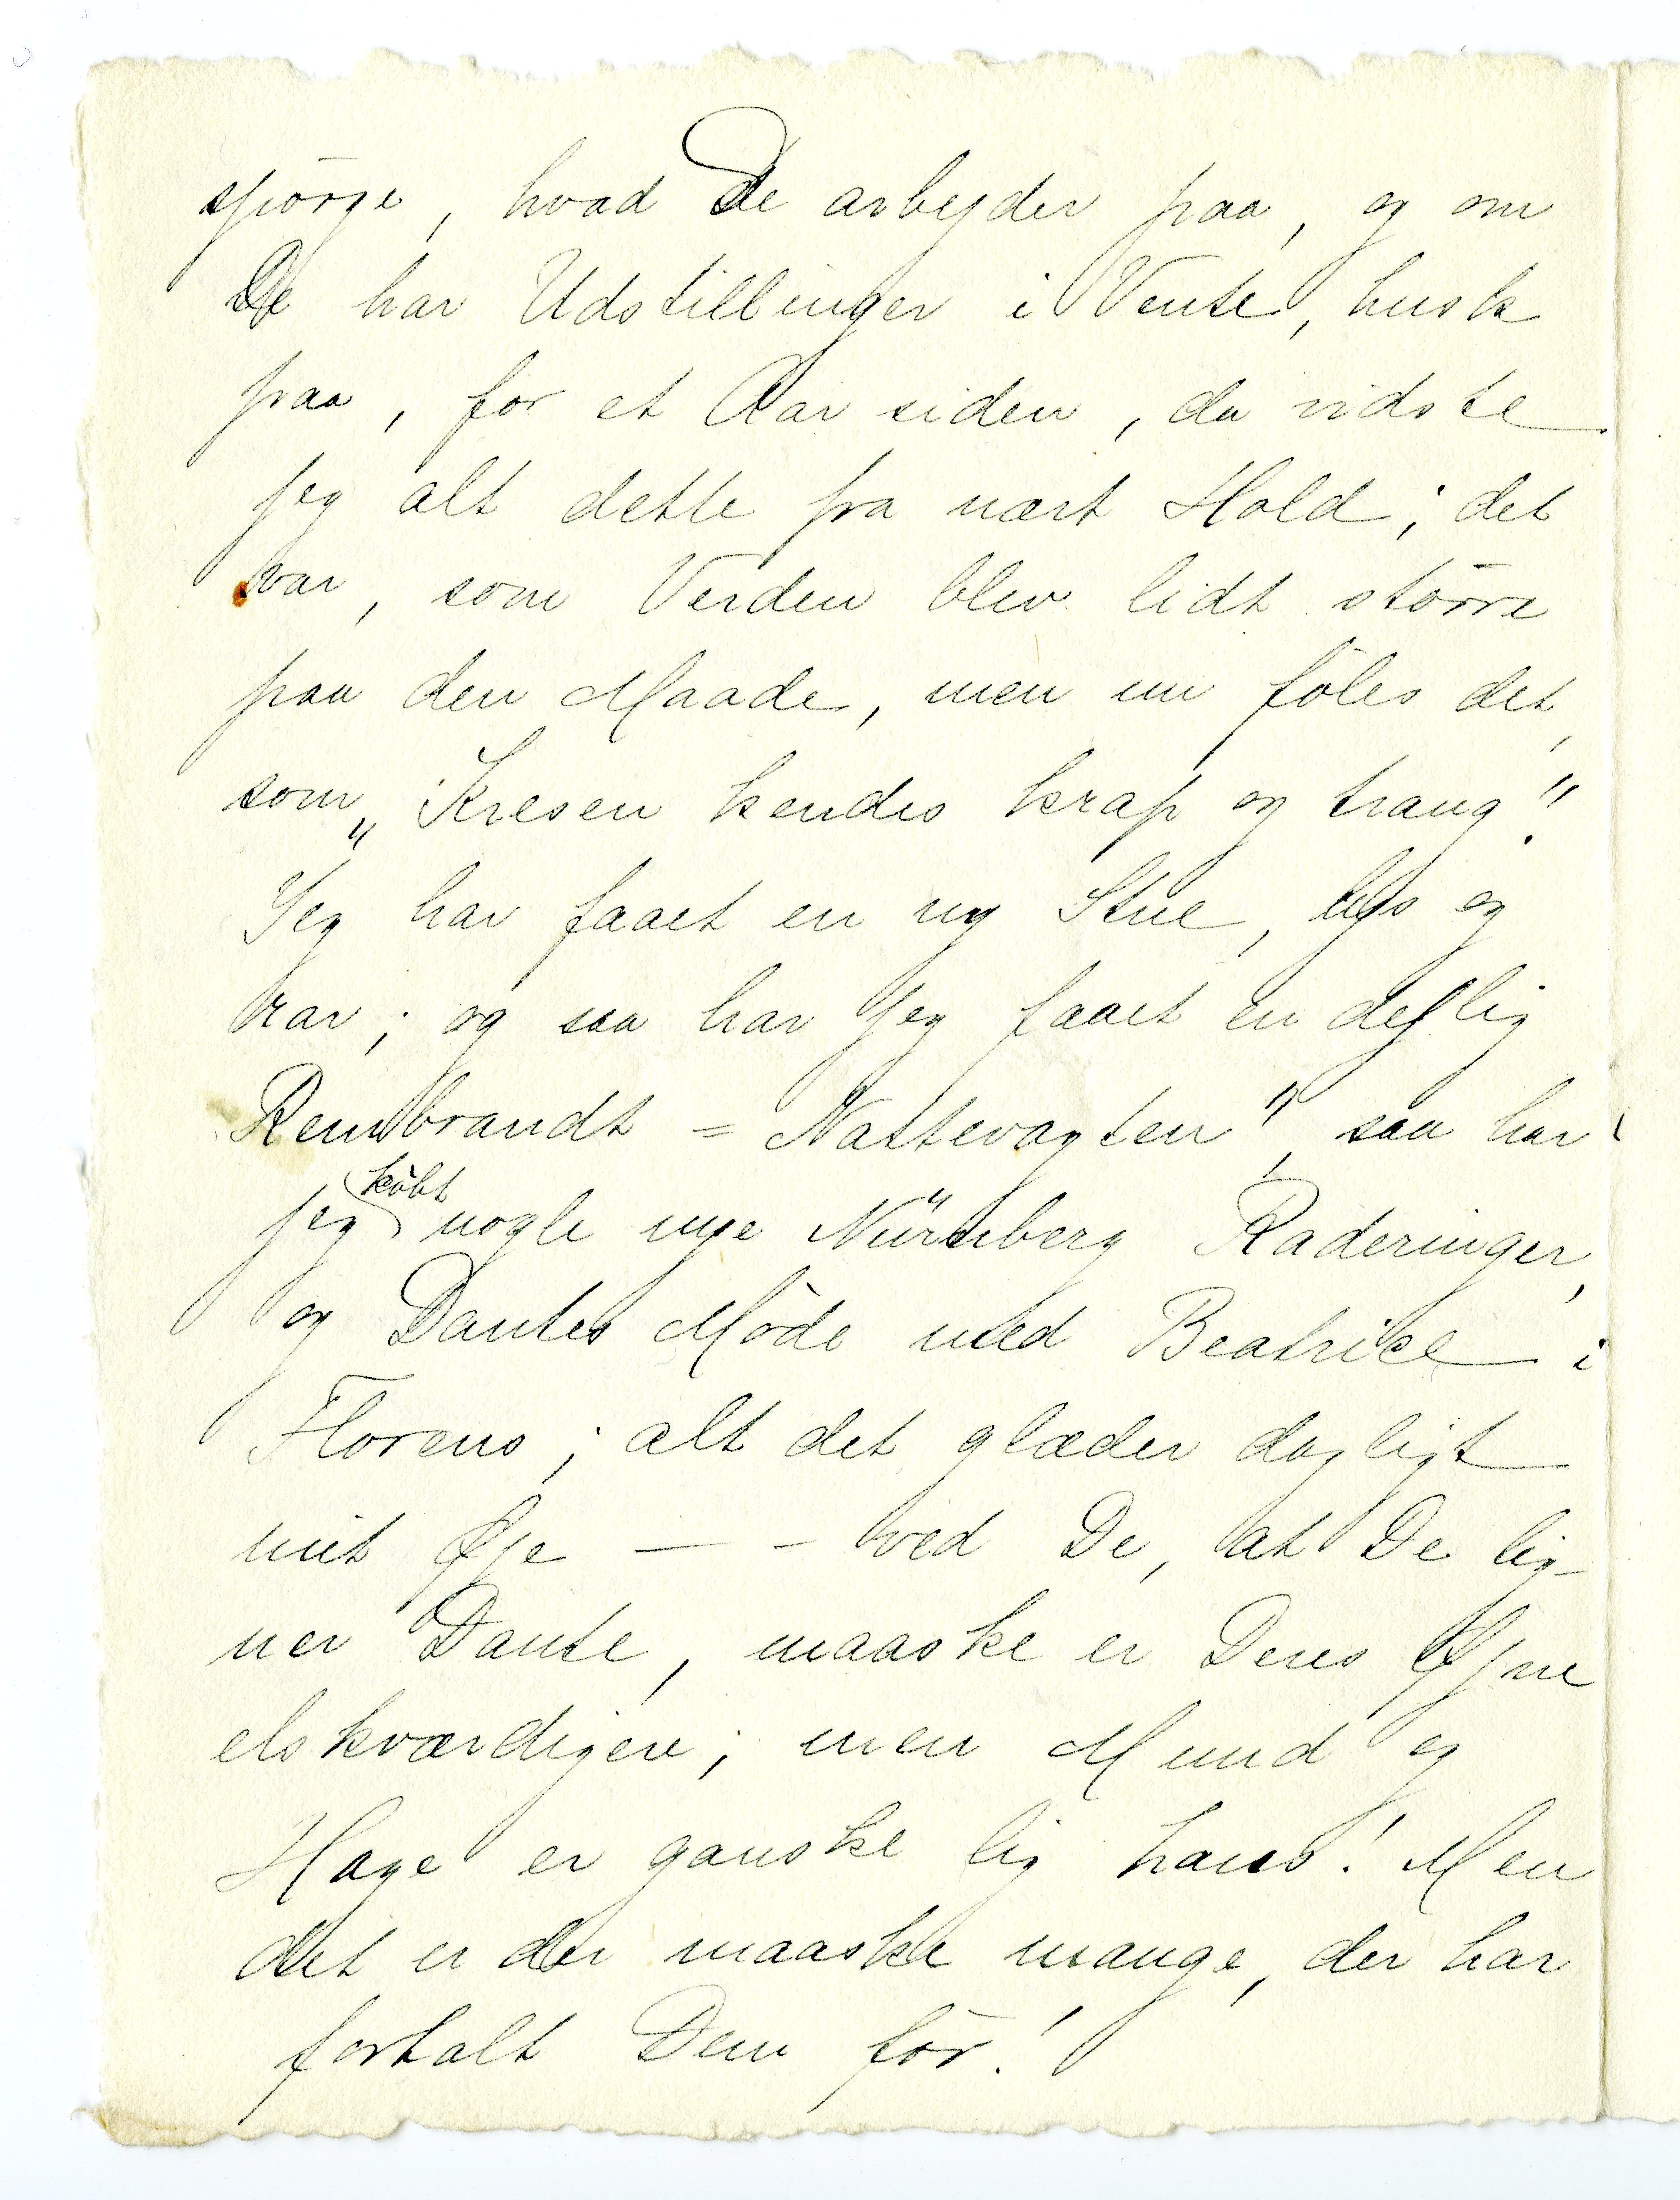 spörge, hvad De arbejder paa, og om
De har Udstillinger i Vente, husk
paa, for et Aar siden, da vidste
jeg alt dette fra nært Hold; det
var, som Verden blev lidt större
paa den Maade, men nu föles det,
som „Kresen kendes knap og trang"!
Jeg har faaet en ny Stue, lys og
rar; og saa har jeg faaet en dejlig
Rembrandt = Nattevagten", saa har
jeg købt nogle nye Nürnberg Raderinger,
og Dantes Möde med Beatrice i
Florens; alt det glæder dagligt
mit Øje — - ved De, at De lig-
ner Dante, maaske er Deres Øjne
elskværdigere; men Mund og
Hage er ganske lig hans! Men
det er der maaske mange, der har
fortalt Dem för!